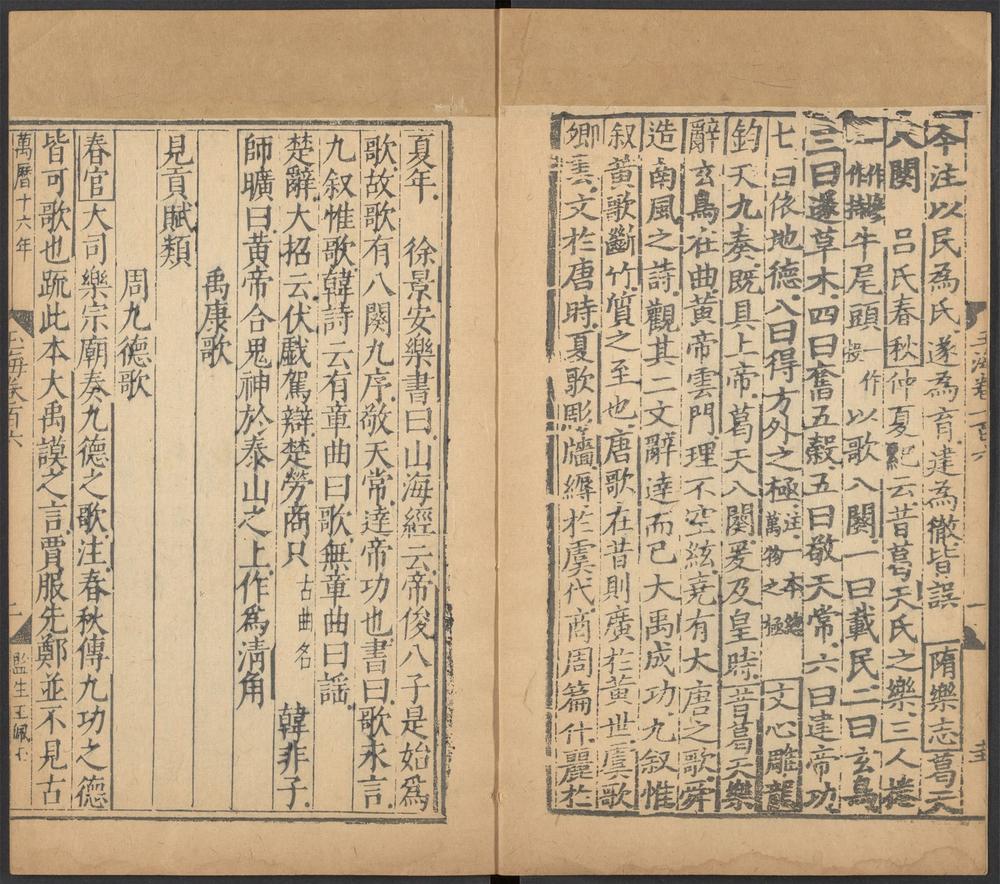 本注以民為氏遂為育建為徹皆誤 隋樂志葛天
八闋 呂氏春秋仲夏紀云昔葛天氏之樂三人捲
一作摻作持牛尾頭一作投以歌八闋一曰載民二曰玄鳥
三曰遂草木四曰奮五穀五曰敬天常六曰達帝功
七曰依地德八曰得方外之極注一本總萬物之極 文心雕龍
鈞天九奏既具上帝葛天八闋爰及皇時昔葛天樂
辭玄鳥在曲黃帝雲門理不空絃堯有大唐之歌舜
造南風之詩觀其二文辭達而已大禹成功九叙惟
叙黃歌斷竹質之至也唐歌在昔則廣於黃世虞歌
卿雲文於唐時夏歌彫牆縟於虞代商周篇什麗於
玉海卷一百六
夏年 徐景安樂書曰山海經云帝俊八子是始為
歌故歌有八闋九序敬天常達帝功也書曰歌永言
九叙惟歌韓詩云有章曲曰歌無章曲曰謠
楚辭大招云伏戲駕辯楚勞商只古曲名 韓非子
師曠曰黃帝合鬼神於泰山之上作為清角
禹康歌
見貢賦類
周九德歌
春官大司樂宗廟奏九德之歌注春秋傳九功之德
皆可歌也疏此本大禹謨之言賈服先鄭並不見古
萬曆十六年 玉海卷百六 二 監生王佩